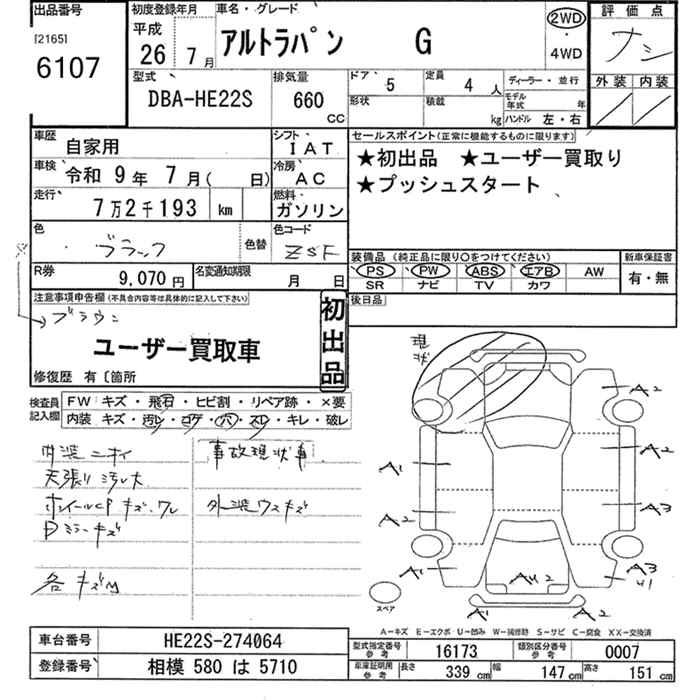 出品番号
[2165]
6107
初度登録年月
平成
26 7月
車名・グレード
アルトラパン G
2WD
・
4WD
評価点
ナシ
外装 内装
型式
DBA-HE22S
排気量
660
CC
ドア 5
定員 4人
形状
積載 kg
ディーラー・並行
モデル年式 年
ハンドル 左・右
車歴
自家用
シフト
IAT
車検
令和 9年 7月( 日)
冷房
AC
走行
7万2千193 km
燃料
ガソリン
セールスポイント(正常に機能するものに限ります)
★初出品 ★ユーザー買取り
★プッシュスタート
色
ブラック
色替
色コード
ZSF
R券
9,070円
名変通知期限
月 日
装備品(純正品に限り○をつけてください)
PS PW ABS エアB AW
SR ナビ TV カワ
新車保証書
有・無
後日品
注意事項申告欄(不具合内容等は具体的に記入して下さい)
ブラウン
ユーザー買取車
初出品
修復歴 有〔箇所
検査員記入欄
FW キズ・飛石・ヒビ割・リペア跡・×要
内装 キズ・汚レ・コゲ・穴・スレ・キレ・破レ
内装ニオイ
天張り汚レ大
ホイールCP キズ・ワレ
Dミラーキズ
各キズM
事故現状車
外装ウスキズ
現状
A2
A1
A2
A2
A3
A1
A3
U1
AU2
A1
A2
スペア
A−キズ E−エクボ U−凹み W−補修跡 S−サビ C−腐食 XX−交換済
車台番号
HE22S-274064
登録番号
相模 580 は 5710
型式指定番号 参考
16173
類別区分番号 参考
0007
車庫証明用 参考
長さ 339 cm
幅 147 cm
高さ 151 cm